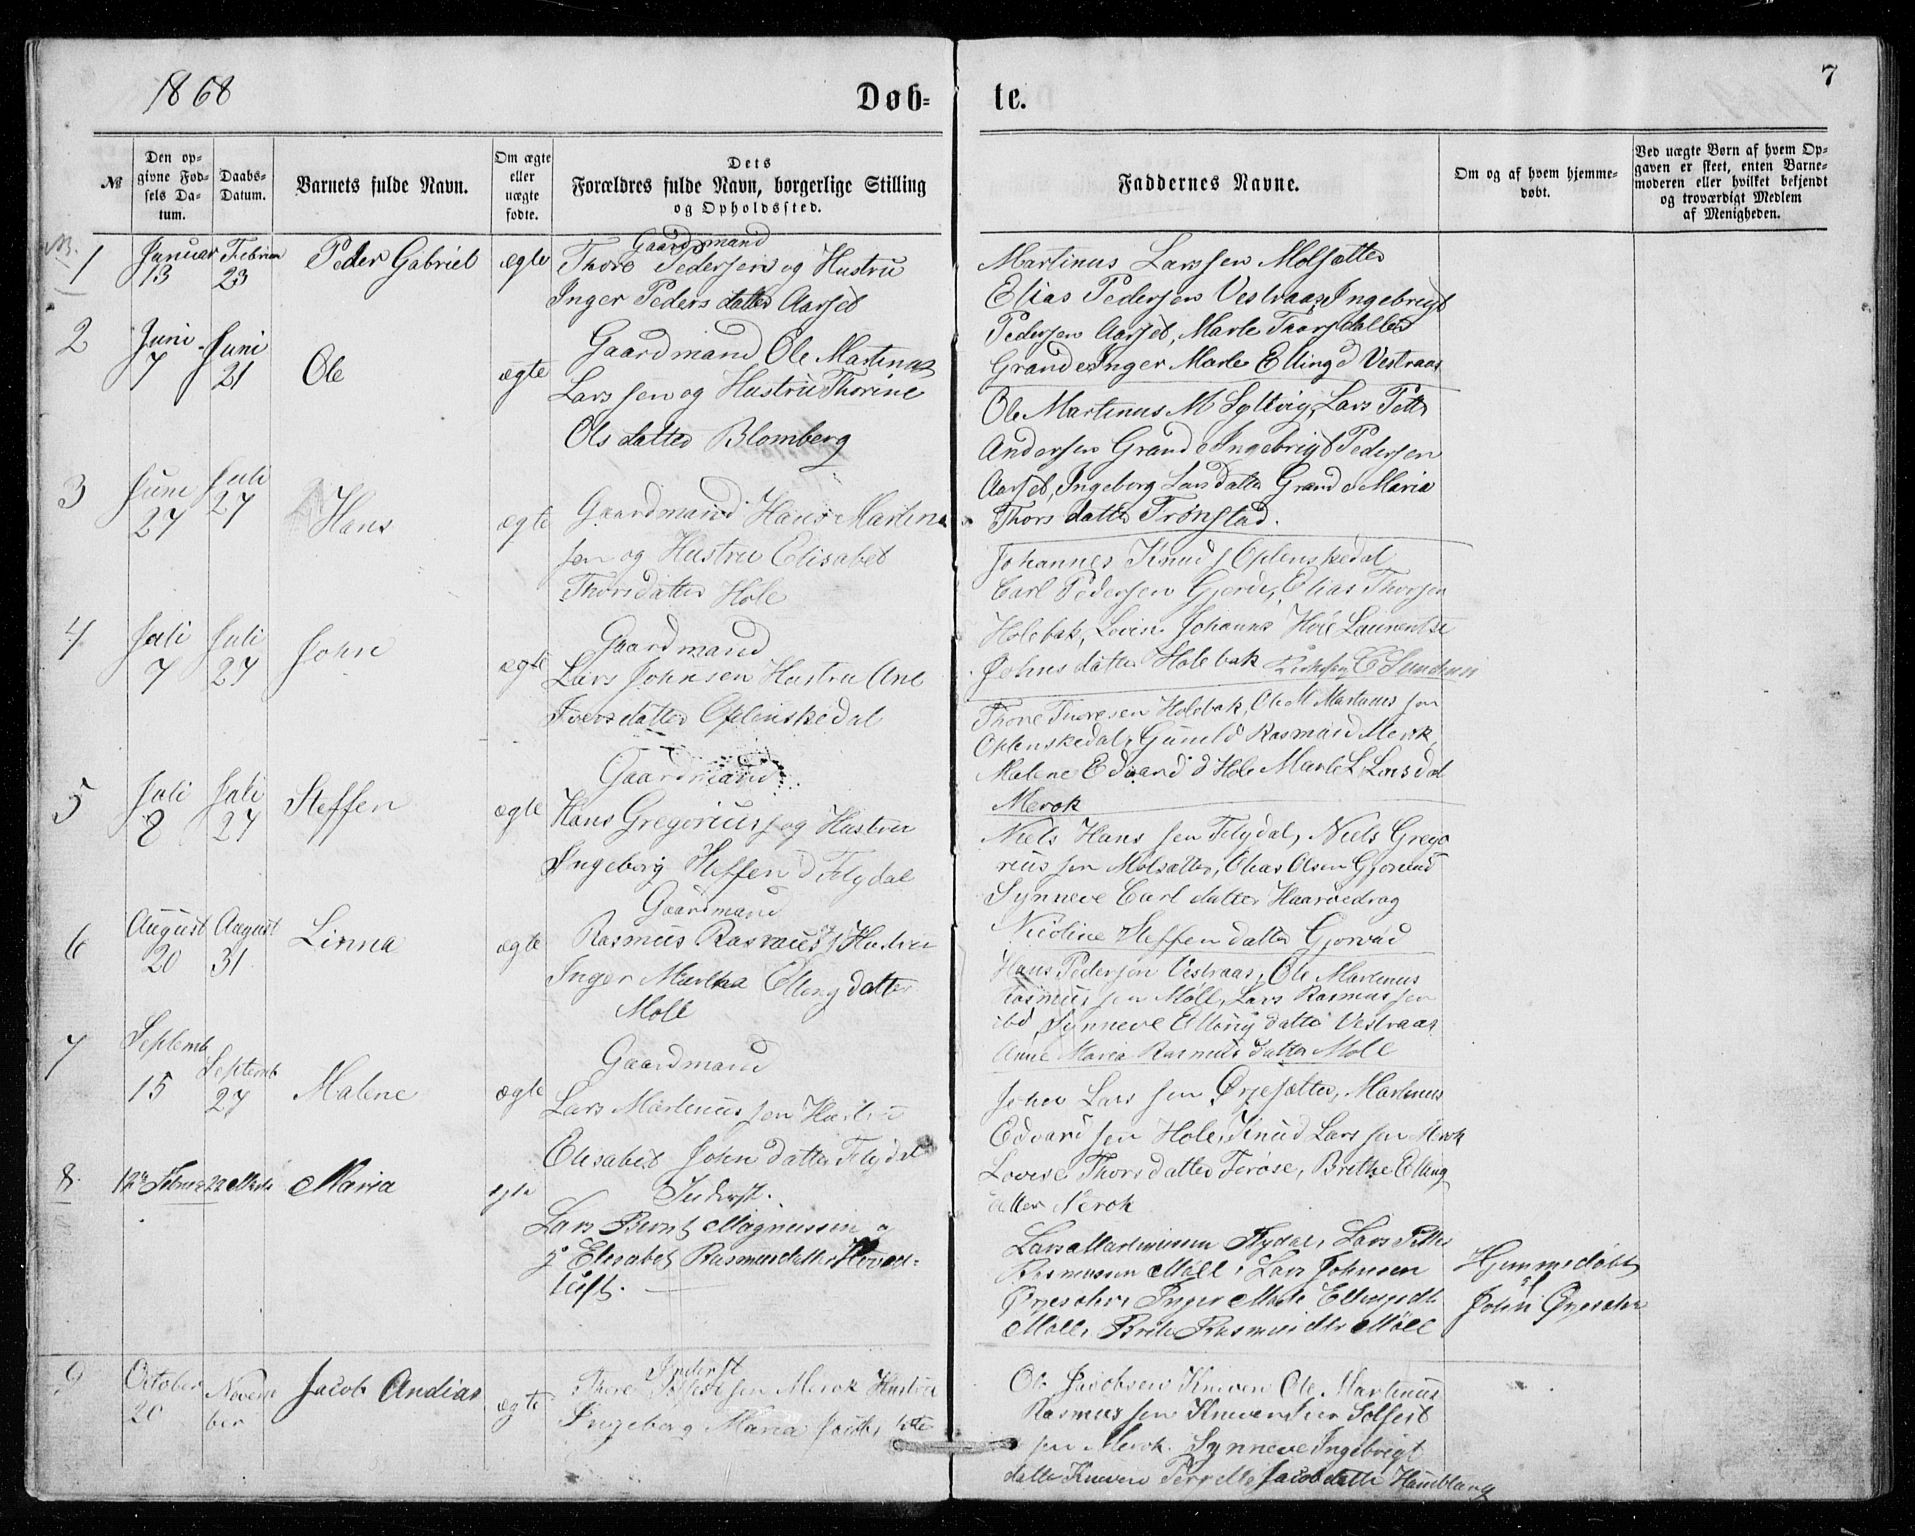 1868
Døb-
te.
7
№
Den op-
givne Fød-
sels Da-
tum.
Daabs-
Datum.
Barnets fulde Navn.
Om ægte
eller
uægte
fødte.
Dets
Forældres fulde Navn, borgerlige Stilling
og Opholdssted.
Faddernes Navne.
Om og af hvem hjemme-
døbt.
Ved uægte Børn af hvem Op-
gaven er skeet, enten Barne-
moderen eller hvilket bekjendt
og troværdigt Medlem
af Menigheden.
1
Januar
13
Februar
23
Peder Gabriel
ægte
Gaardmand
Thore Pedersen og Hustru
Inger Peders datter Aarset
Martinus Larssen Molsætter
Elias Pedersen Vestraas, Ingebrigt
Pedersen Aarset, Marte Thorsdatter
Grande, Inger Marte Elling d Vestraas
2
Juni
7
Juni
21
Ole
ægte
Gaardmand Ole Martinus
Larssen og Hustru Thorine
Ols datter Blomberg
Ole Martinus M Syltvig, Lars Petter
Andersen Grande Ingebrigt Pedersen
Aarset, Ingeborg Larsdatter Grande Maria
Thors datter Trønstad.
3
Juni
27
Juli
27
Hans
ægte
Gaardmand Hans Martin
sen og Hustru Elisabet
Thorsdatter Hole
Johannes Knud s Oplenskedal
Carl Pedersen Gjerde, Elias Thorsen
Holebak, Johanns Hole Laurentse
Johns datter Holebak
4
Juli
7
Juli
27
John
ægte
Gaardmand
Lars Johnsen Hustru Ane
Iversdatter Oplenskedal
Thore Thoresen Holebak, Ole M Martinus sen
Oplenskedal, Gunild Rasmusd Merok
Malene Edvard d Hole Marte L Larsdat
Merok
5
Juli
8
Juli
27
Steffen
ægte
Gaardmand
Hans Gregorius s og Hustru
Ingeborg Steffen d Flydal
Niels Hans sen Flydal, Niels Grego
rius sen Molsætter, Elias Olsen Gjørvad
Synneve Carl datter Haarvedrag
Nicoline Steffen datter Gjørvad
6
August
20
August
31
Linna
ægte
Gaardmand
Rasmus Rasmus s og Hustru
Inger Martha Elling datter
Moll
Hans Pedersen Vestraas, Ole Martinus
Rasmus sen Moll, Lars Rasmus sen
ibd Synneve Elling datter Vestraas
Anne Maria Rasmus datter Moll
7
Septemb
15
Septemb
27
Malene
ægte
Gaardmand
Lars Martinus sen Hustru
Elisabet John datter Flydal
John Lars sen Ørjesætter, Martinus
Edvard sen Hole, Knud Lars sen Merok
Lovise Thorsdatter Birøse, Brithe Elling
datter Merok
8
12te Februar
22 Marts
Maria
ægte
Inderst.
Lars Bernt Magnussen o
g Elisabet Rasmusdatter Hoved-
tuft.
Lars Martinussen Flydal, Lars Petter
Rasmussen Moll, Lars Johnsen
Ørjesæter, Inger Marte Ellingsdtr
Moll, Brite Rasmusdtr Moll
Hjemmedøbt
af
John Ørjesæter
9
October
20
Novem
ber
Jacob Andias
ægte
Inderst
Thore Solfest sen Merok Hustru
Ingeborg Maria Jacobs datte
Ole Jacobsen Kneven Ole Martinus
Rasmus sen Kneven Solfest
sen Merok. Synneve Ingebrigt
datte Kneven Jacobdatte